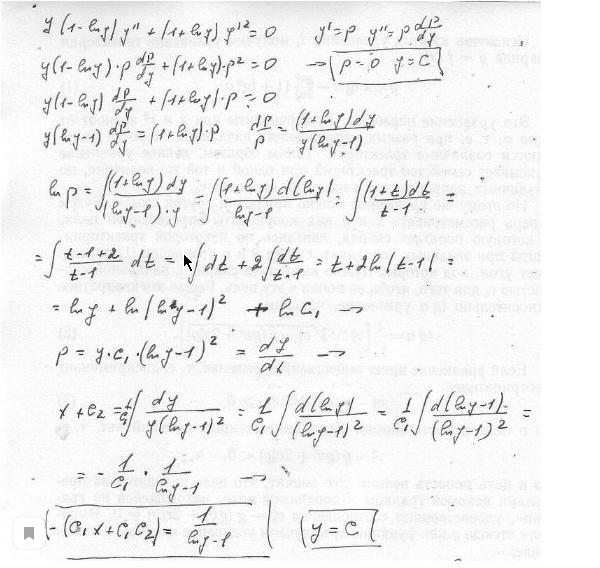 y(1-ln y) y'' + (1+ln y) y'² = 0   y' = p   y'' = p dp/dy
y(1-ln y)·p dp/dy + (1+ln y)·p² = 0 → p = 0   y = C
y(1-ln y) dp/dy + (1+ln y)·p = 0
y(ln y-1) dp/dy = (1+ln y)·p   dp/p = (1+ln y)dy / y(ln y-1)
ln p = ∫ (1+ln y)dy / (ln y-1)·y = ∫ (1+ln y) d(ln y) / ln y-1 = ∫ (1+t)dt / t-1 =
= ∫ t-1+2 / t-1 dt = ∫ dt + 2∫ dt / t-1 = t + 2ln|t-1| =
= ln y + ln(ln y-1)² + ln C₁ →
p = y·C₁·(ln y-1)² = dy/dt →
x + C₂ = 1/C₁ ∫ dy / y(ln y-1)² = 1/C₁ ∫ d(ln y) / (ln y-1)² = 1/C₁ ∫ d(ln y-1) / (ln y-1)² =
= - 1/C₁ · 1/ln y-1 →
-(C₁x + C₁C₂) = 1/ln y-1   y = C